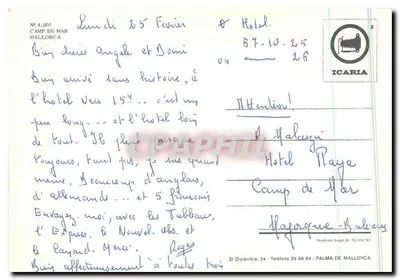 Nº 4.001
CAMP DE MAR
MALLORCA
Lundi 25 Fevrier
Bien chers Angele et
Bien arrivé sans histoire, à
l'hotel vers 15h... c'est un
peu long... et l'hotel loin
de tout. Il pleut presque
toujours, tant pis, je suis quand
même, Beaucoup d'anglais,
d'allemands... et 5 français
Envoyez-moi, avec les
l'Express, le Nouvel obs. et
le Canard. Merci. Roger
Bien affectueusement à toutes trois
Hotel
67-10-25
ou 26
ICARIA
Attention!
Hotel Playa
Camp de Mar
Majorque - Baleares
21 Diciembre, 24 - Teléfono 25 69 64 - PALMA DE MALLORCA
DELCAMPHIL